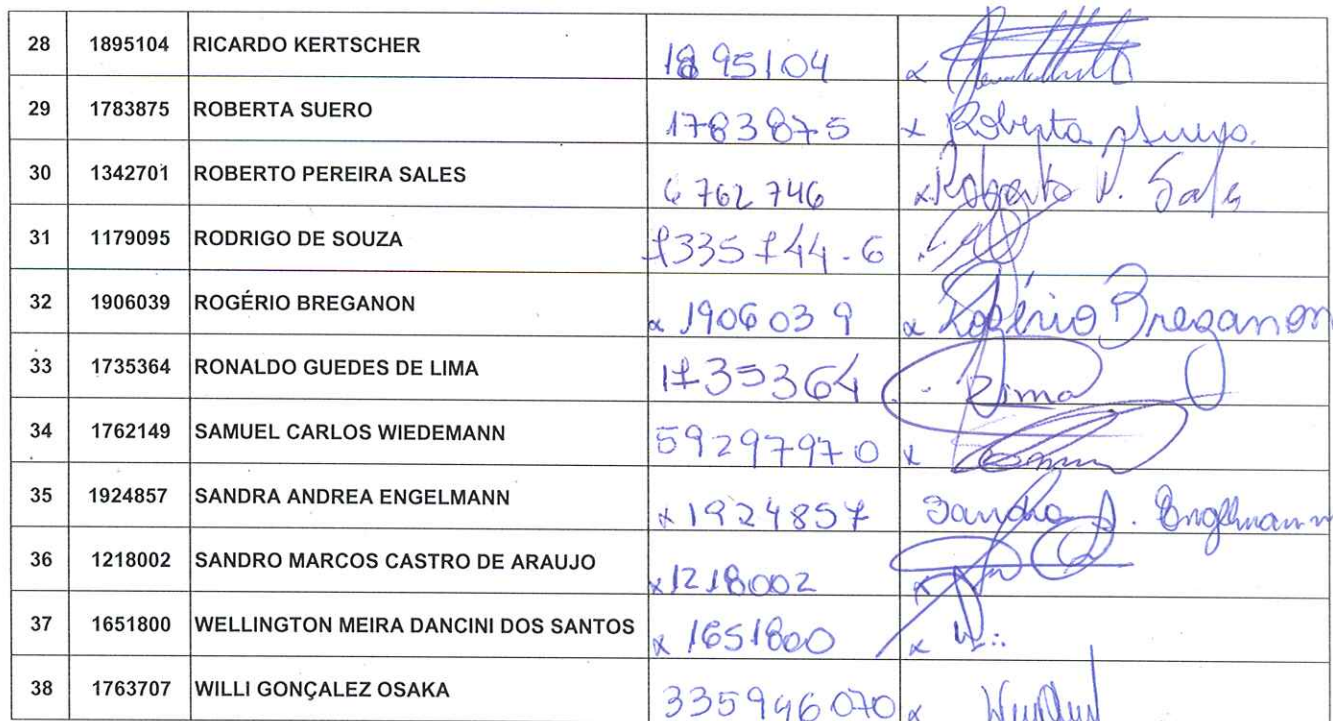 28 1895104 RICARDO KERTSCHER 1895104 x
29 1783875 ROBERTA SUERO 1783875 x Roberta Suero.
30 1342701 ROBERTO PEREIRA SALES 6762746 x Roberto P. Sales
31 1179095 RODRIGO DE SOUZA 7335744-6
32 1906039 ROGÉRIO BREGANON x 1906039 x Rogério Breganon
33 1735364 RONALDO GUEDES DE LIMA 1735364 Lima
34 1762149 SAMUEL CARLOS WIEDEMANN 59297970 x
35 1924857 SANDRA ANDREA ENGELMANN x 1924857 Sandra A. Engelmann
36 1218002 SANDRO MARCOS CASTRO DE ARAUJO x 1218002 x
37 1651800 WELLINGTON MEIRA DANCINI DOS SANTOS x 1651800 x
38 1763707 WILLI GONÇALEZ OSAKA 335946070 x